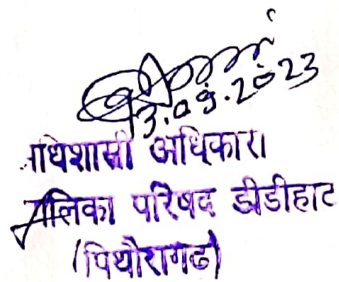 3.09.2023
ाधिशासी अधिकारी
ालिका परिषद डीडीहाट
(पिथौरागढ)